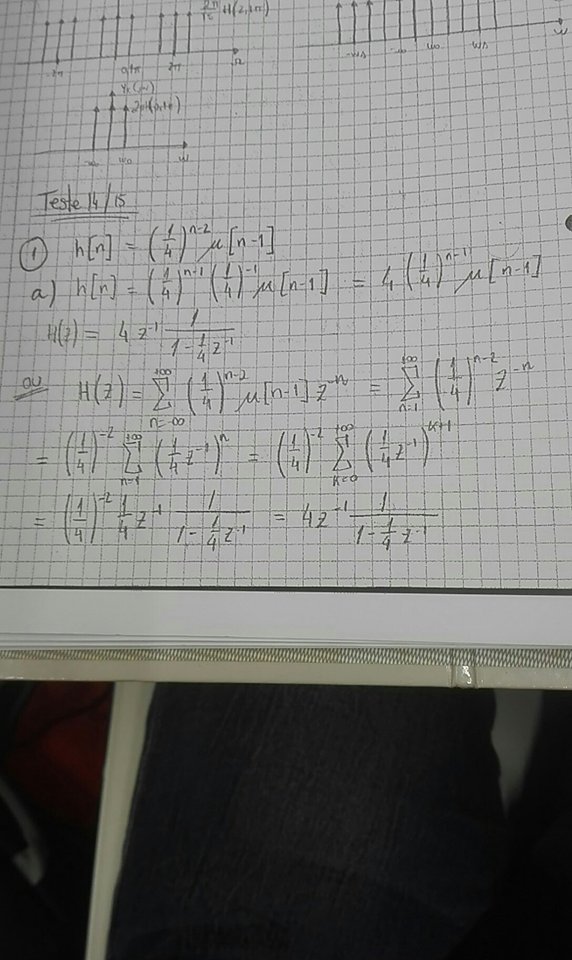 -2π 0 2π Ω
-ws -w0 w0 ws w
-w0 w0 w
Teste 14/15
① h[n] = (1/4)^{n-2} μ[n-1]
a) h[n] = (1/4)^{n-1} (1/4)^{-1} μ[n-1] = 4 (1/4)^{n-1} μ[n-1]
H(z) = 4 z^{-1} 1/(1 - 1/4 z^{-1})
ou H(z) = ∑_{n=-∞}^{+∞} (1/4)^{n-2} μ[n-1] z^{-n} = ∑_{n=1}^{+∞} (1/4)^{n-2} z^{-n}
= (1/4)^{-2} ∑_{n=1}^{+∞} (1/4 z^{-1})^{n} = (1/4)^{-2} ∑_{k=0}^{+∞} (1/4 z^{-1})^{k+1}
= (1/4)^{-2} 1/4 z^{-1} 1/(1 - 1/4 z^{-1}) = 4z^{-1} 1/(1 - 1/4 z^{-1})